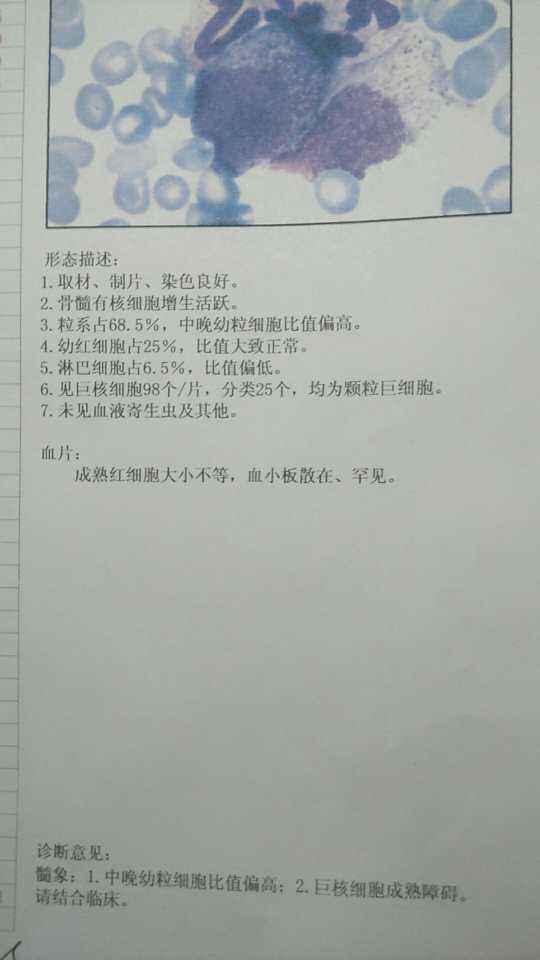 形态描述：
1.取材、制片、染色良好。
2.骨髓有核细胞增生活跃。
3.粒系占68.5%，中晚幼粒细胞比值偏高。
4.幼红细胞占25%，比值大致正常。
5.淋巴细胞占6.5%，比值偏低。
6.见巨核细胞98个/片，分类25个，均为颗粒巨细胞。
7.未见血液寄生虫及其他。
血片：
成熟红细胞大小不等，血小板散在、罕见。
诊断意见：
髓象：1.中晚幼粒细胞比值偏高；2.巨核细胞成熟障碍。
请结合临床。